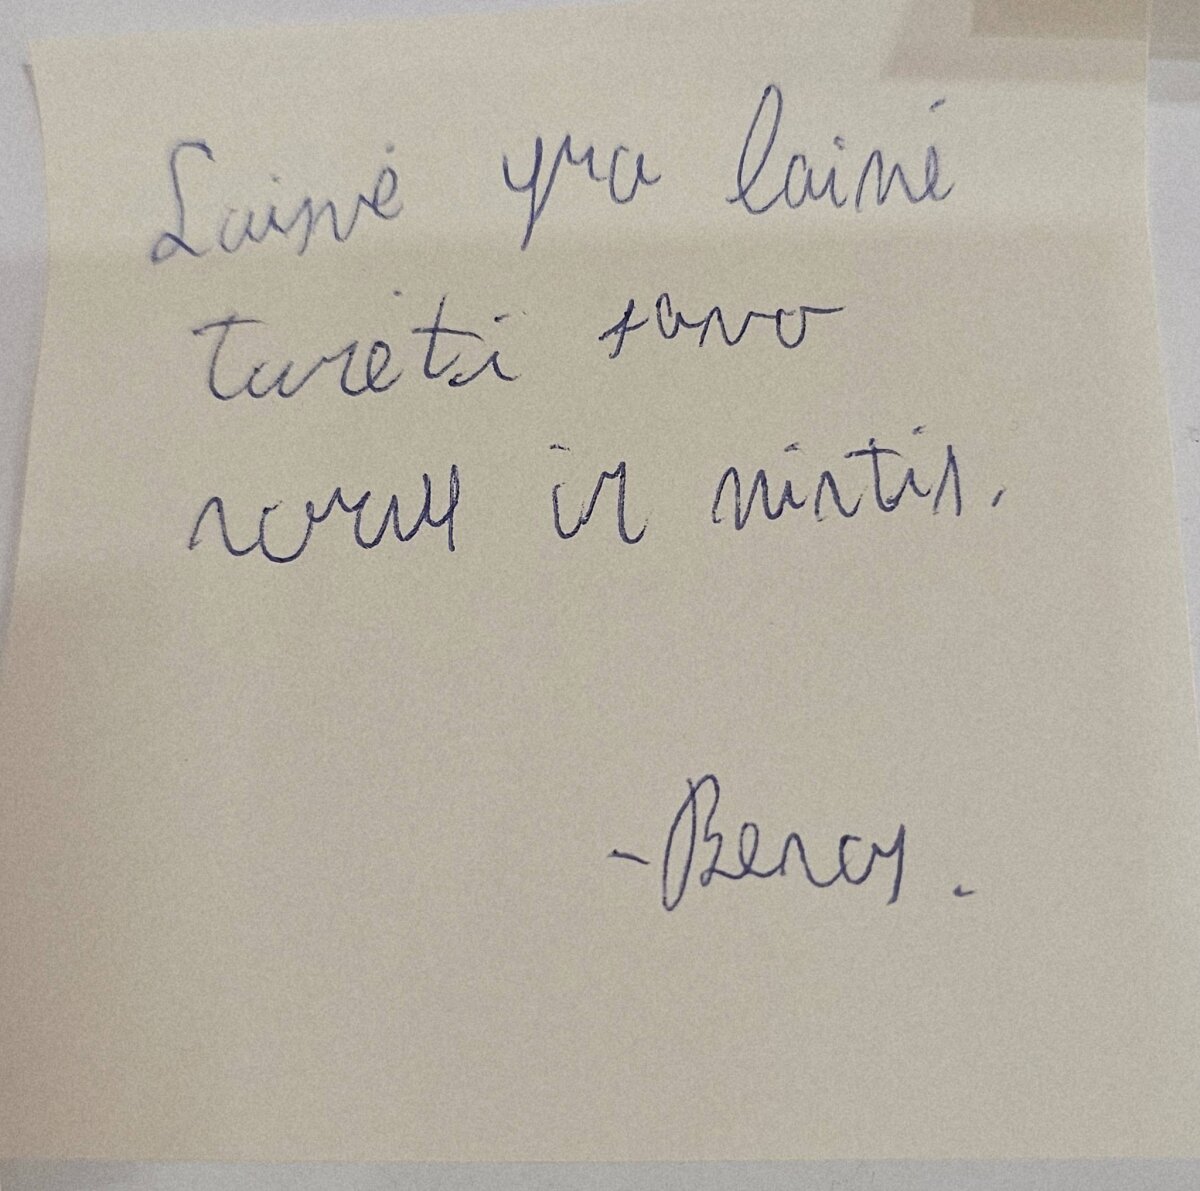 Laimė yra laimė
turėti savo
norus ir mintis.
- Benas.